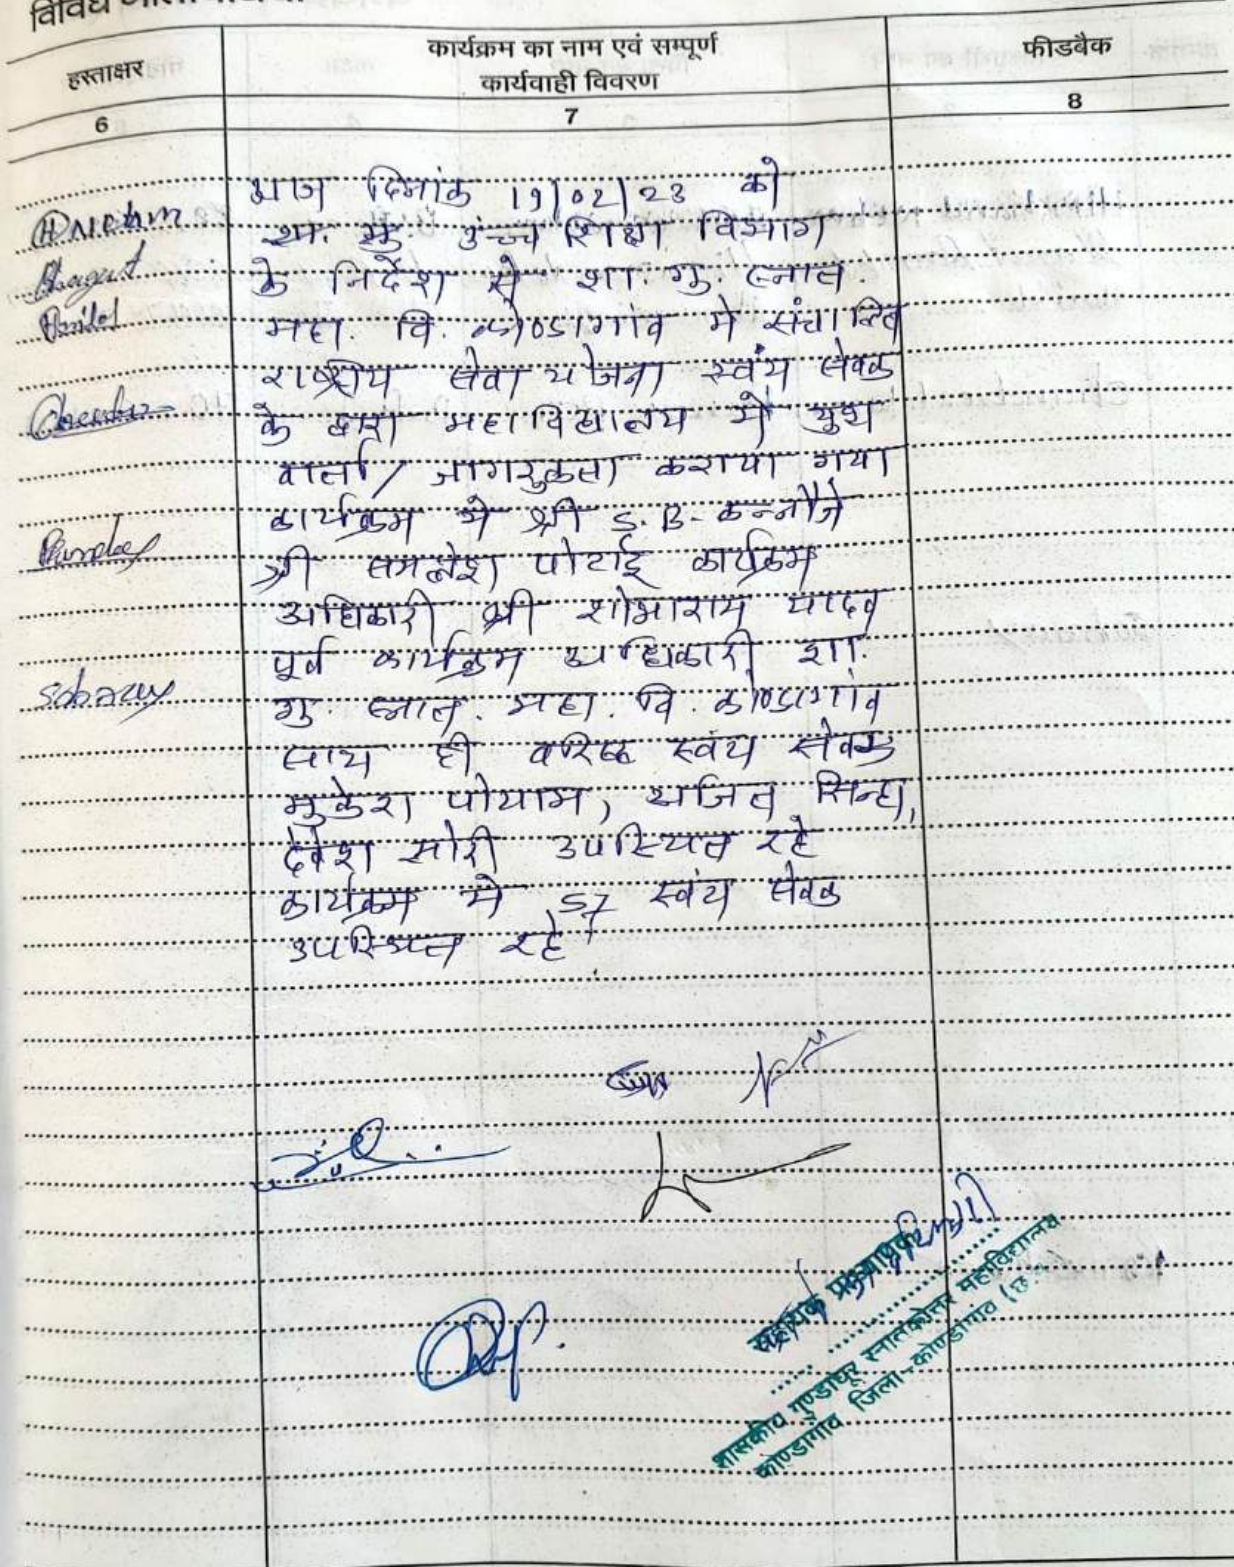 विविध
हस्ताक्षर
कार्यक्रम का नाम एवं सम्पूर्ण
कार्यवाही विवरण
फीडबैक
6
7
8
आज दिनांक 19/02/23 को
शा. गु. उच्च शिक्षा विभाग
के निर्देश से शा. गु. स्नात.
महा. वि. कोण्डागांव मे संचालित
राष्ट्रीय सेवा योजना स्वंय सेवक
के द्वारा महाविद्यालय मे युवा
वार्ता / जागरुकता कराया गया
कार्यक्रम मे श्री S.B. कन्नौजे
श्री समलेश पोटाई कार्यक्रम
अधिकारी श्री शोभाराम यादव
पूर्व कार्यक्रम अधिकारी शा.
गु. स्नात. महा. वि. कोण्डागांव
साथ ही वरिष्ठ स्वंय सेवक
मुकेश पोयाम, अजित सिन्हा,
देवेश सोरी उपस्थित रहे
कार्यक्रम मे 57 स्वंय सेवक
उपस्थित रहे
सहायक प्राध्यापक
शासकीय गुण्डाधूर स्नातकोत्तर महाविद्यालय
कोण्डागाँव जिला-कोण्डागांव (छ.